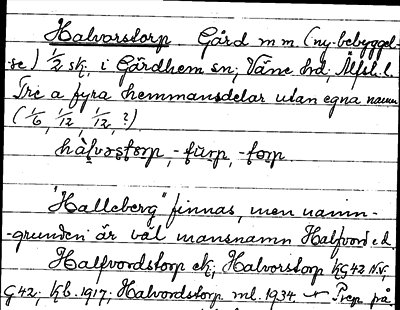 Halvarstorp Gård m m (ny bebyggel-
se) 1/2 sk, i Gärdhem sn, Väne hd, Älfsb. l.
Tre a fyra hemmansdelar utan egna namn
(1/6, 1/12, 1/12, ?)
hàlvəstorp, -furp, -forp
"Halleberg" finnas, men namn-
-grunden är väl mansnamn Halfvord el.
Halfvordstorp ek; Halvorstorp KG42 N.V.
G42; Kb. 1917; Halvordstorp ml. 1934. Prep. på.